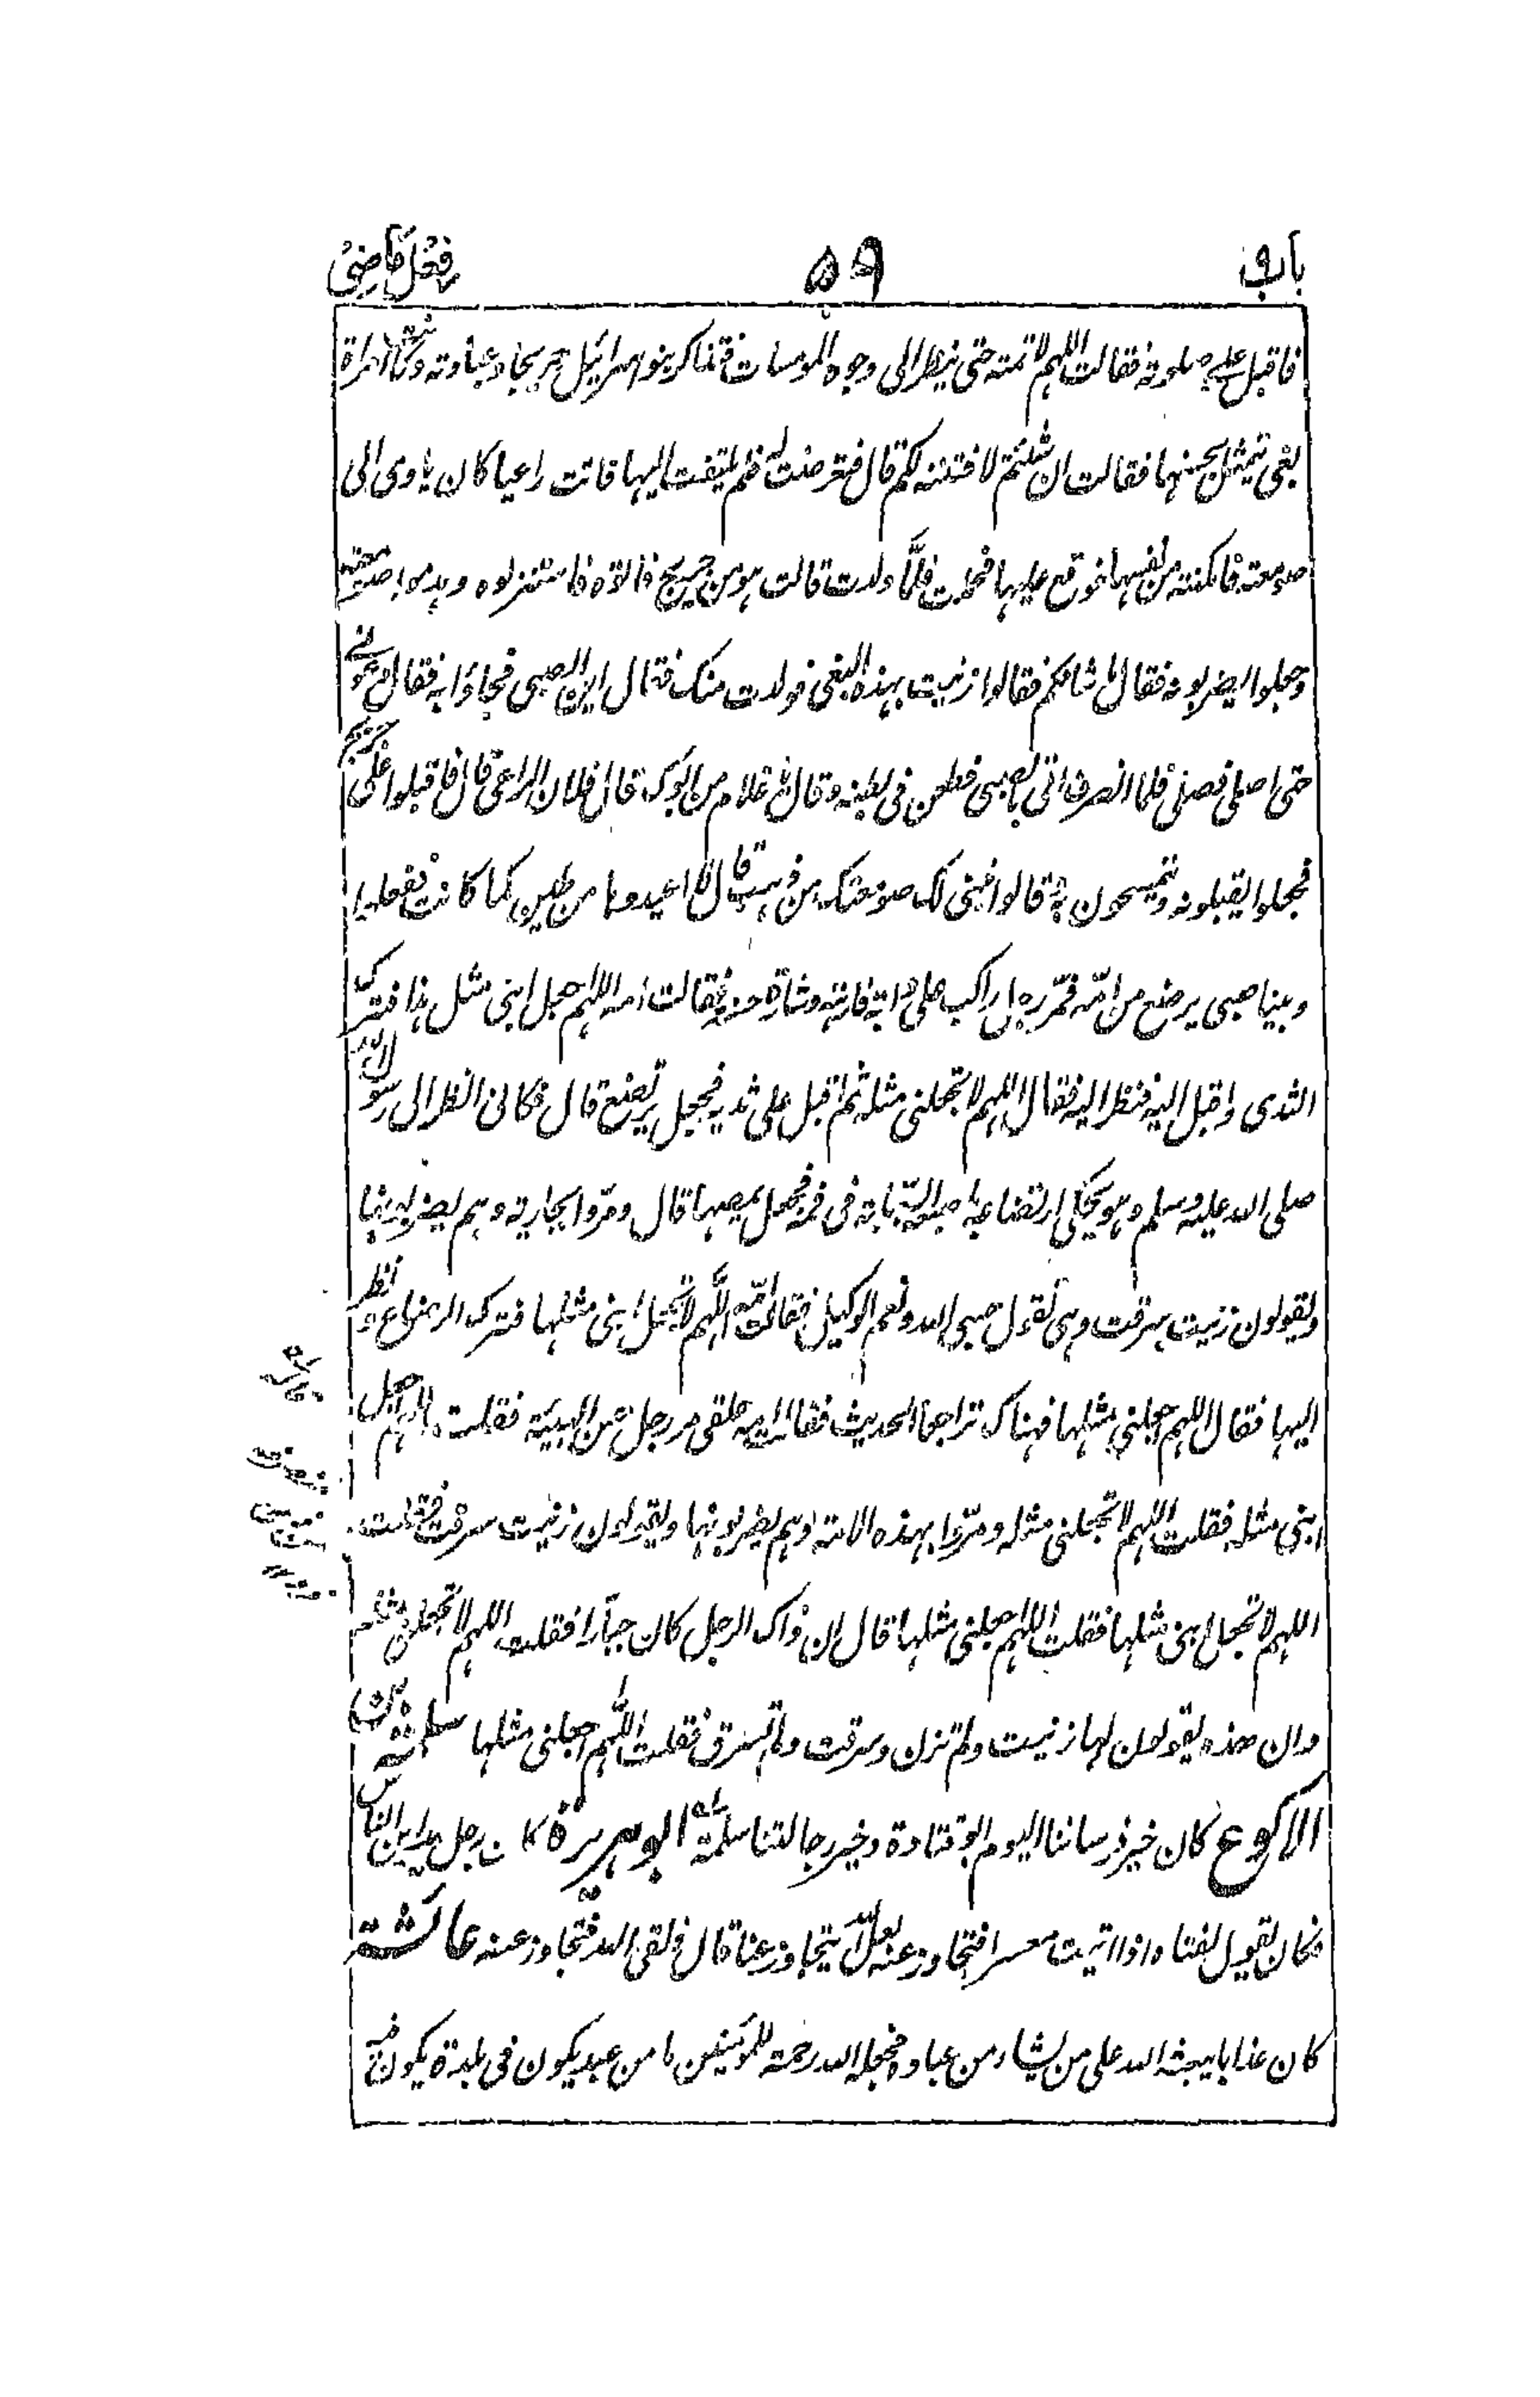 باب ٥٩ فعل ماضى
فاقبل على صلوته فقالت اللهم لا تمته حتى ينظر الى وجوه المومسات فتذاكر بنو اسرائيل جريجا وعبادته وكانت امرأة
بغى يتمثل بحسنها فقالت ان شئتم لافتننه لكم قال فتعرضت له فلم يلتفت اليها فاتت راعيا كان ياوى الى
صومعته فامكنته من نفسها فوقع عليها فحملت فلمّا ولدت قالت هو من جريج فاتوه فاستنزلوه وهدموا صومعته
وجعلوا يضربونه فقال ما شانكم فقالوا زنيت بهذه البغى فولدت منك فقال اين الصبى فجاؤا به فقال دعونى
حتى اصلى فصلى فلما انصرف اتى بالصبى فطعن فى بطنه وقال يا غلام من ابوك قال فلان الراعى قال فاقبلوا على جريج
فجعلوا يقبلونه ويتمسحون به قالوا نبنى لك صومعتك من ذهب قال لا اعيدوها من طين كما كانت ففعلوا
وبينا صبى يرضع من امّه فمرّ رجل راكب على دابة فارهة وشارة حسنة فقالت امه اللهم اجعل ابنى مثل هذا فترك
الثدى واقبل اليه فنظر اليه فقال اللهم لا تجعلنى مثله ثم اقبل على ثديه فجعل يرتضع قال فكانى انظر الى رسول الله
صلى الله عليه وسلم وهو يحكى ارتضاعه باصبعه السبّابة فى فمه فجعل يمصها قال ومرّوا بجارية وهم يضربونها
ويقولون زنيت سرقت وهى تقول حسبى الله ونعم الوكيل فقالت امّه اللّهم لا تجعل ابنى مثلها فترك الرضاع ونظر
اليها فقال اللهم اجعلنى مثلها فهناك تراجعا الحديث فقالت امه حلقى مر رجل حسن الهيئة فقلت اللهم اجعل
ابنى مثله فقلت اللهم لا تجعلنى مثله ومرّوا بهذه الامة وهم يضربونها ويقولون زنيت سرقت فقلت
اللهم لا تجعل ابنى مثلها فقلت اللهم اجعلنى مثلها قال ان ذاك الرجل كان جبّارا فقلت اللهم لا تجعلنى مثله
وان هذه يقولون لها زنيت ولم تزن وسرقت ولم تسرق فقلت اللّهم اجعلنى مثلها سلمة بن
الاكوع كان خير فرساننا اليوم ابو قتادة وخير رجالتنا سلمة ابو هريرة كان رجل يداين الناس
فكان يقول لفتاه اذا اتيت معسرا فتجاوز عنه لعل الله يتجاوز عنا قال فلقى الله فتجاوز عنه عائشة
كان عذابا يبعثه الله على من يشاء من عباده فجعله الله رحمة للمؤمنين ما من عبد يكون فى بلدة يكون فيه